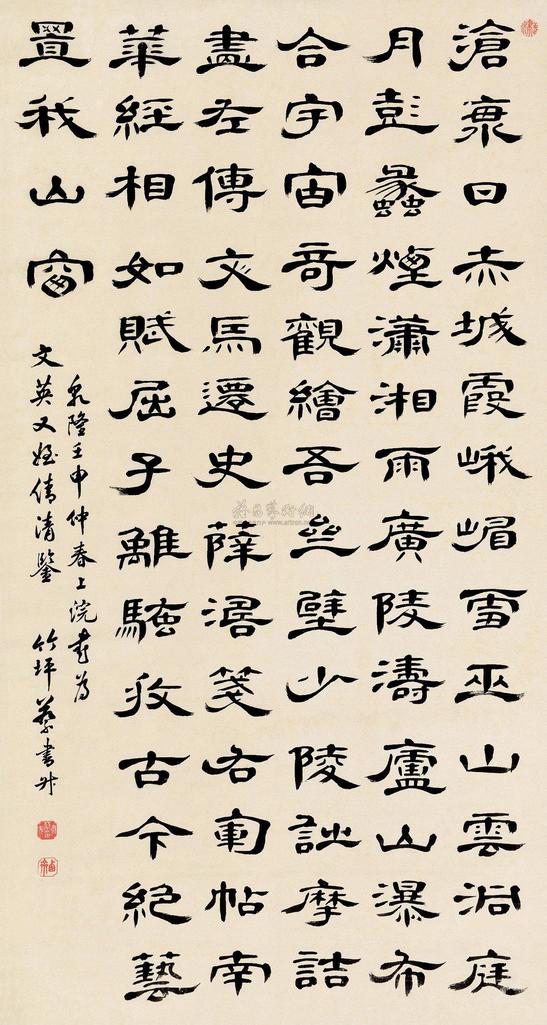 滄海日赤城霞峨嵋雪巫山雲洞庭
月彭蠡煙瀟湘雨廣陵濤廬山瀑布
合宇宙奇觀繪吾齋壁少陵詩摩詰
畫左傳文馬遷史薛濤箋右軍帖南
華經相如賦屈子離騷收古今絕藝
置我山窗
乾隆壬申仲春上浣書為
文英又姪倩清鑒 竹坪蔡書升